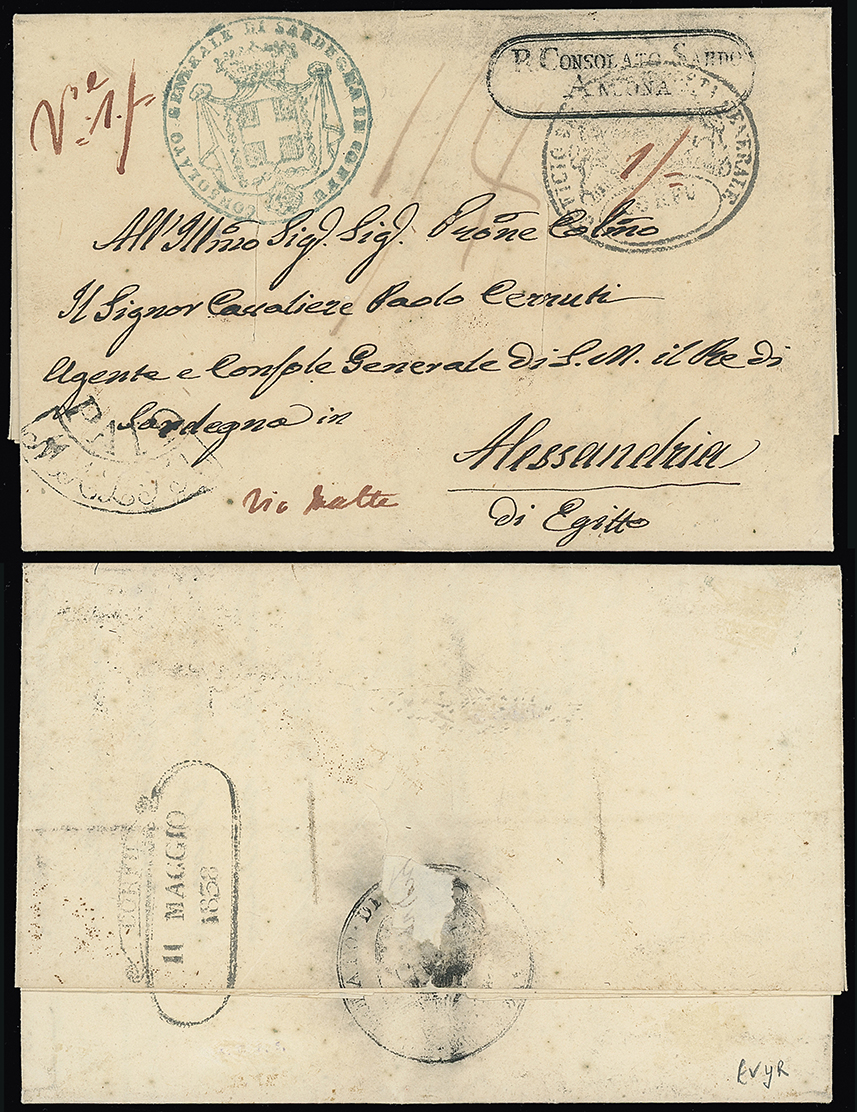 CONSOLATO GENERALE DI SARDEGNA IN CORFU
R. CONSOLATO SARDO
ANCONA
GENERALE
CORFU
1/-
All'Illmo Sigr. Sigr. Prone Colmo
Il Signor Cavaliere Paolo Cerruti
Agente e Console Generale di S. M. il Re di
Sardegna in
Alessandria
di Egitto
PAID
via Malta
CORFU
11 MAGGIO
1838
EVYR